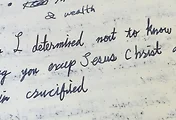 & wealth
I determined not to know
g you except Jesus Christ
in crucified